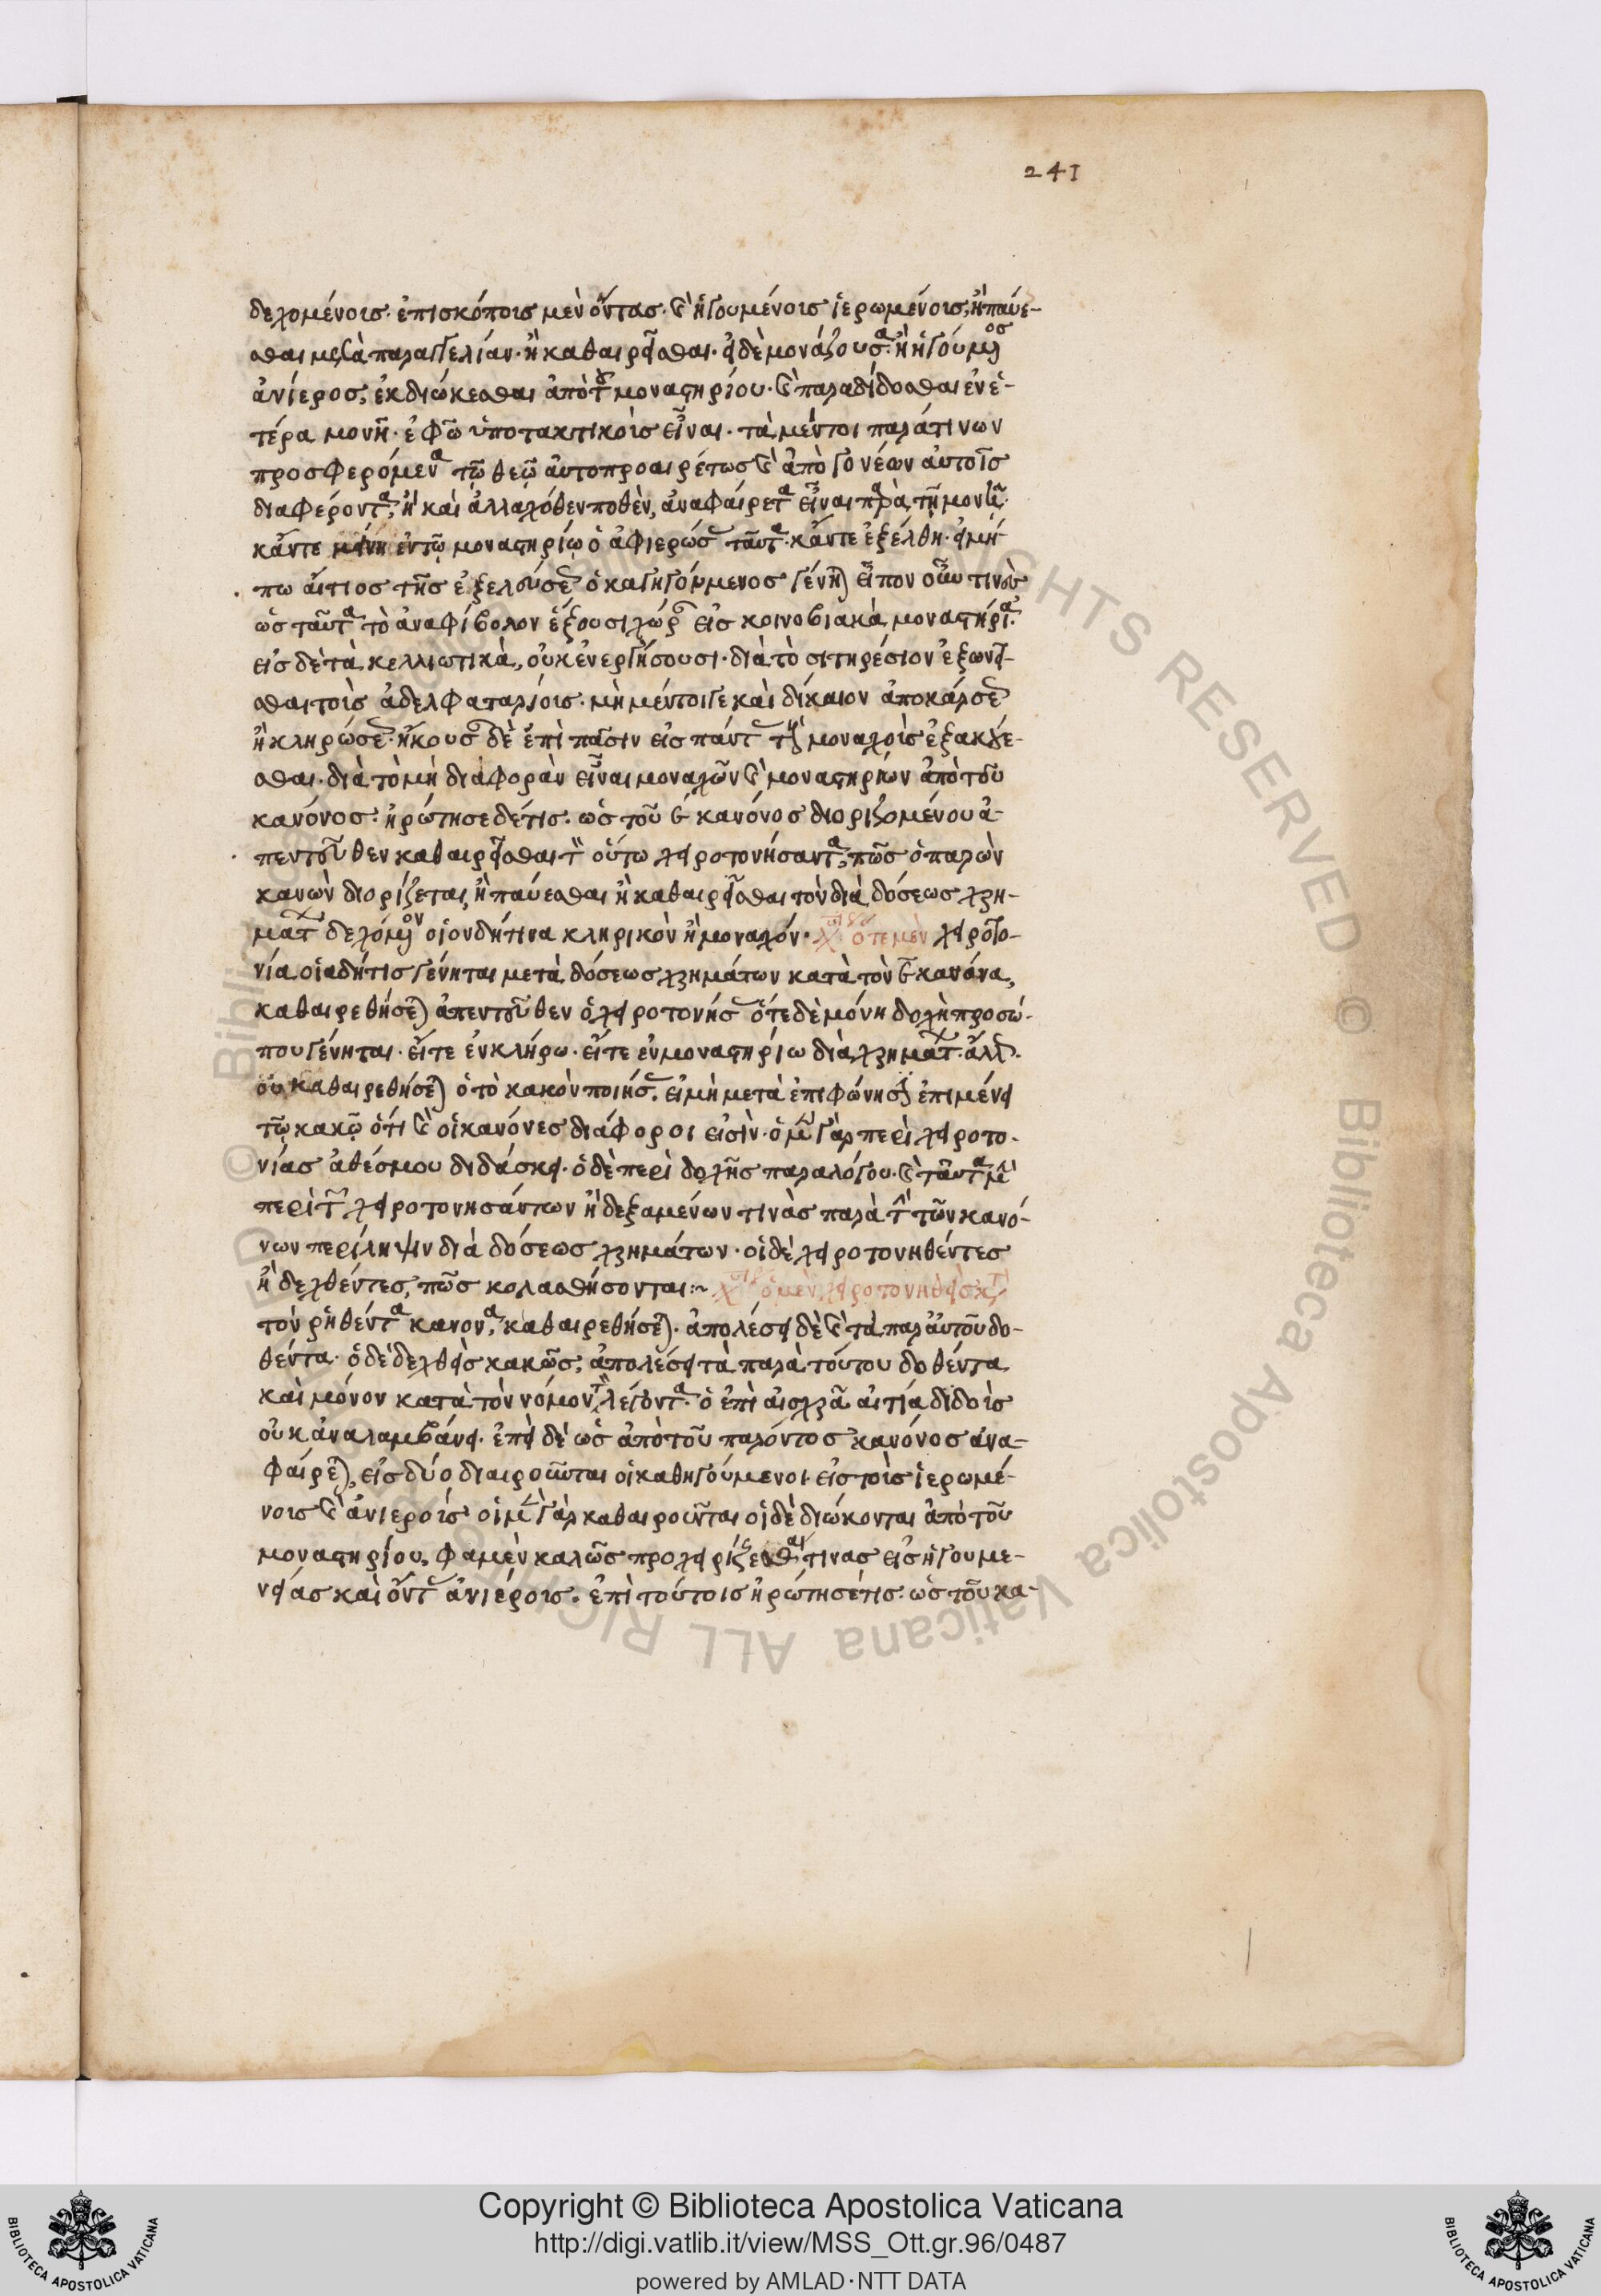 241
δεχομένοις· ἐπισκόποις μὲν ὄντας· καὶ ἡγουμένοις ἱερωμένοις, ἢ παύε-
σθαι μετὰ παραγγελίαν· ἢ καθαιρεῖσθαι· εἰ δὲ μονάζουσα ἢ ἡγούμενος
ἀνίερος, ἐκδιώκεσθαι ἀπὸ τοῦ μοναστηρίου· καὶ παραδίδοσθαι ἐν ἑ-
τέρα μονῆ· ἐφῶ ὑποτακτικοὺς εἶναι· τὰ μέντοι παρά τινων
προσφερόμενα τῶ θεῶ αὐτοπροαιρέτως καὶ ἀπὸ γονέων αὐτοῖς
διαφέροντα, ἢ καὶ ἀλλαχόθεν ποθὲν, ἀναφαίρετα εἶναι παρὰ τῆ μονῆ·
κἄντε μένη ἐν τῶ μοναστηρίω ὁ ἀφιερώσας ταῦτα· κἄντε ἐξέλθη· εἰ μή
πω αἴτιος τῆς ἐξελεύσεως ὁ καθηγούμενος γένηται εἶπον οὖν τινὲς
ὡς ταῦτα τὸ ἀναφίβολον ἕξουσι χώραν εἰς κοινοβιακὰ μοναστήρια·
εἰς δὲ τὰ κελλιωτικὰ, οὐκ ἐνεργήσουσι· διὰ τὸ σιτηρέσιον ἐξωνεῖ-
σθαι τοὺς ἀδελφαταρίους· μὴ μέντοιγε καὶ δίκαιον ἀποκάρσεως
ἢ κληρώσεως· ἤκουσαν δὲ ἐπὶ πᾶσιν εἰς πάντας τοὺς μοναχοὺς ἐξακούε-
σθαι· διὰ τὸ μὴ διαφορὰν εἶναι μοναχῶν καὶ μοναστηρίων ἀπὸ τοῦ
κανόνος· ἠρώτησε δέ τις· ὡς τοῦ κανόνος διοριζομένου ἀ-
πεντεῦθεν καθαιρεῖσθαι τὸν οὕτω χειροτονήσαντα, πῶς ὁ παρὼν
κανὼν διορίζεται, ἢ παύεσθαι ἢ καθαιρεῖσθαι τὸν διὰ δόσεως χρη-
μάτων δεχόμενον οἱονδήτινα κληρικὸν ἢ μοναχόν· ὅτε μὲν χειροτο-
νία οἱαδήτις γένηται μετὰ δόσεως χρημάτων κατὰ τὸν κανόνα,
καθαιρεθήσεται ἀπεντεῦθεν ὁ χειροτονήσας ὅτε δὲ μόνη δοχὴ προσώ-
που γένηται· εἴτε ἐν κλήρω· εἴτε ἐν μοναστηρίω διὰ χρημάτων·
οὐ καθαιρεθήσεται ὁ τὸ κακὸν ποιήσας. εἰμὴ μετὰ ἐπιφώνησιν ἐπιμένει
τῶ κακῶ ὅτι καὶ οἱ κανόνες διάφοροι εἰσὶν· ὁ μὲν γὰρ περὶ χειροτο-
νίας ἀθέσμου διδάσκει· ὁ δὲ περὶ δοχῆς παραλόγου· καὶ ταῦτα μὲν
περὶ τῶν χειροτονησάντων ἢ δεξαμένων τινὰς παρὰ τὴν τῶν κανό-
νων περίληψιν διὰ δόσεως χρημάτων· οἱ δὲ χειροτονηθέντες
ἢ δεχθέντες, πῶς κολασθήσονται:~ ὁ μὲν χειροτονηθεὶς κατὰ
τὸν ῥηθέντα κανόνα, καθαιρεθήσεται· ἀπολέσει δὲ καὶ τὰ παρ αὐτοῦ δο-
θέντα· ὁ δὲ δεχθεὶς κακῶς, ἀπολέσει τὰ παρὰ τούτου δοθέντα
καὶ μόνον κατὰ τὸν νόμον τὸν λέγοντα· ὁ ἐπὶ αἰσχρᾶ αἰτία διδοὺς
οὐκ ἀναλαμβάνει· ἐπεὶ δὲ ὡς ἀπὸ τοῦ παρόντος κανόνος ἀνα-
φαίρεται, εἰς δύο διαιροῦνται οἱ καθηγούμενοι· εἰς τοὺς ἱερωμέ-
νους καὶ ἀνιέρους οἱ μὲν γὰρ καθαιροῦνται οἱ δὲ διώκονται ἀπὸ τοῦ
μοναστηρίου, φαμὲν καλῶς προχειρίζεσθαι τινας εἰς ἡγουμε-
νείας καὶ ὄντας ἀνιέρους. ἐπὶ τούτοις ἠρώτησέ τις· ὡς τοῦ κα-
© Biblioteca Apostolica Vaticana ALL RIGHTS RESERVED
Copyright © Biblioteca Apostolica Vaticana
http://digi.vatlib.it/view/MSS_Ott.gr.96/0487
powered by AMLAD·NTT DATA
BIBLIOTECA APOSTOLICA VATICANA
BIBLIOTECA APOSTOLICA VATICANA